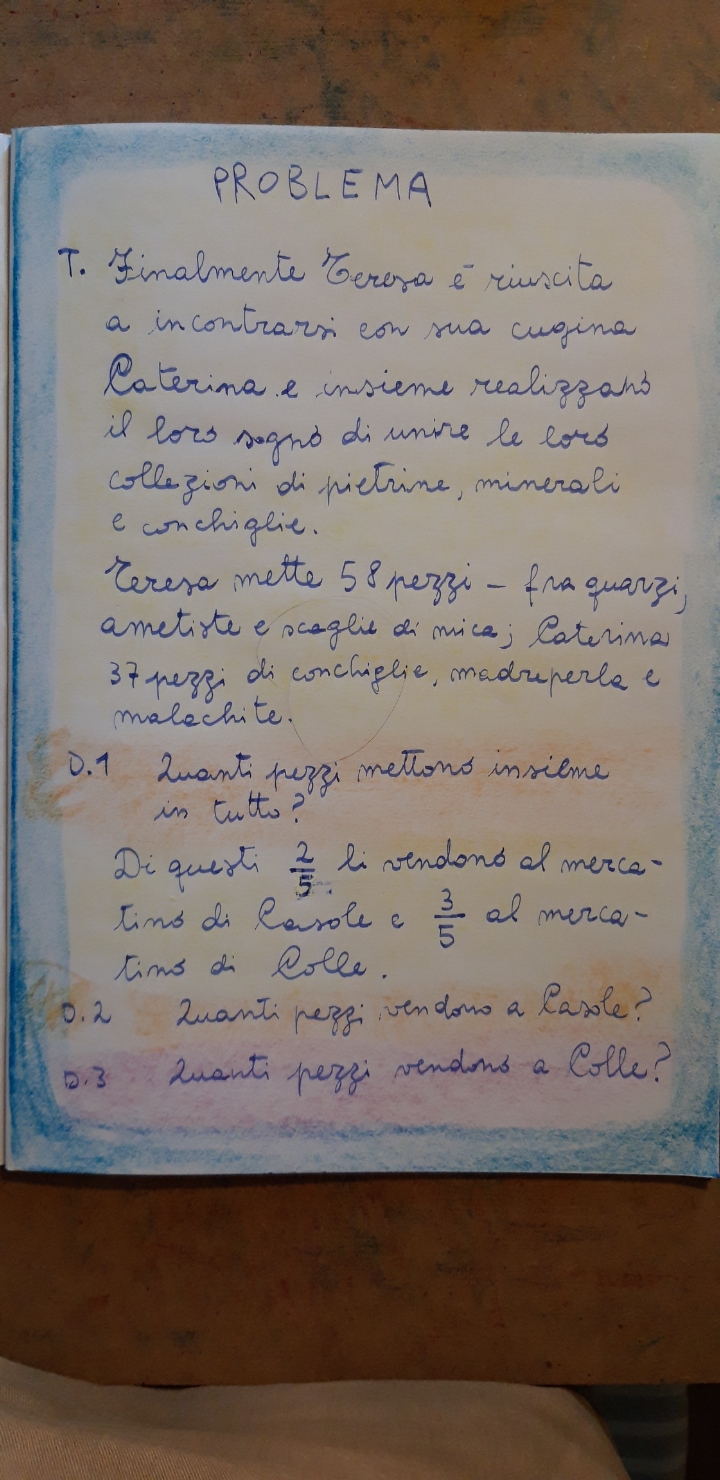 PROBLEMA
T. Finalmente Teresa è riuscita
a incontrarsi con sua cugina
Caterina e insieme realizzano
il loro sogno di unire le loro
collezioni di pietrine, minerali
e conchiglie.
Teresa mette 58 pezzi - fra quarzi,
ametiste e scaglie di mica; Caterina
37 pezzi di conchiglie, madreperla e
malachite.
D.1 Quanti pezzi mettono insieme
in tutto?
Di questi 2/5 li vendono al merca-
tino di Casole e 3/5 al merca-
tino di Colle.
D.2 Quanti pezzi vendono a Casole?
D.3 Quanti pezzi vendono a Colle?